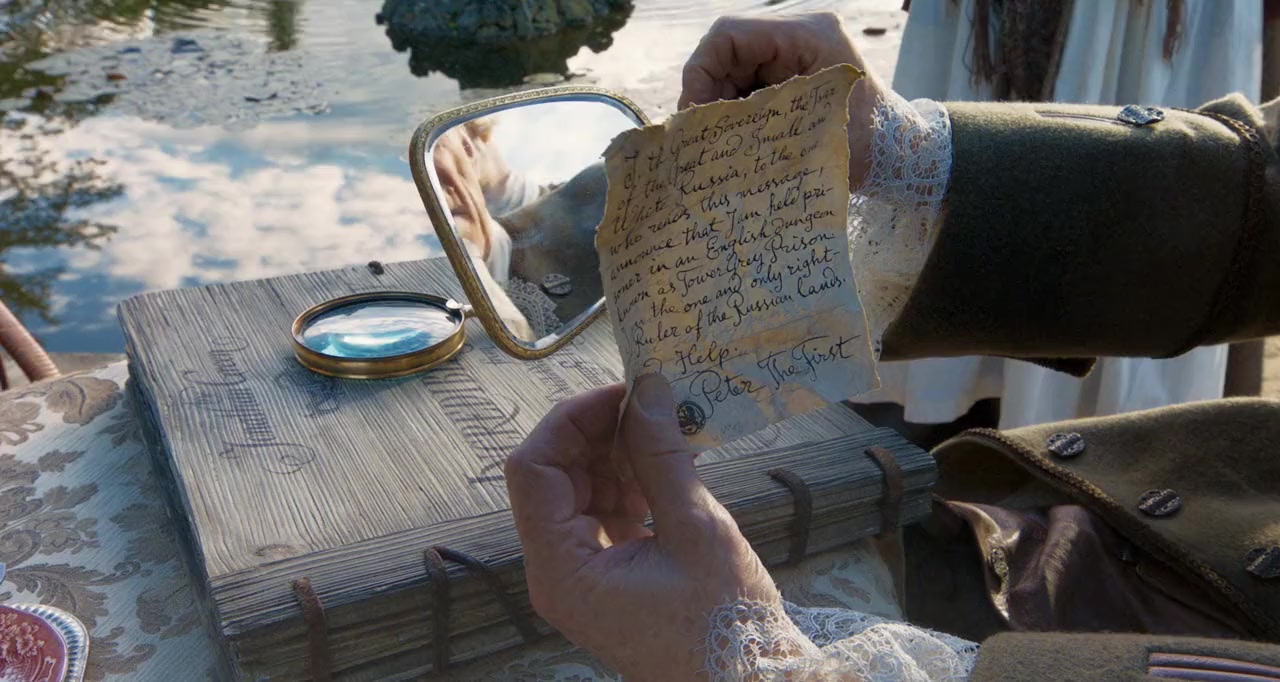 I, the Great Sovereign, the Tsar
of the Great and Small and
White Russia, to the one
who reads this message,
announce that I am held pri-
soner in an English Dungeon
known as Tower Grey Prison
the one and only right-
Ruler of the Russian lands.
Help.
Peter The First